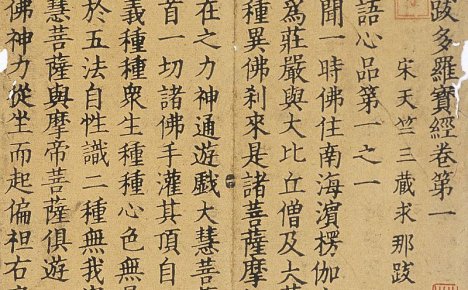 跋多羅寶經卷第一
宋天竺三藏求那跋
語心品第一之一
聞一時佛住南海濵楞伽
爲莊嚴與大比丘僧及大菩
種異佛刹來是諸菩薩摩
在之力神通遊戲大慧菩
首一切諸佛手灌其頂自
義種種衆生種種心色無
於五法自性識二種無我
慧菩薩與摩帝菩薩俱遊
佛神力從坐而起偏袒右